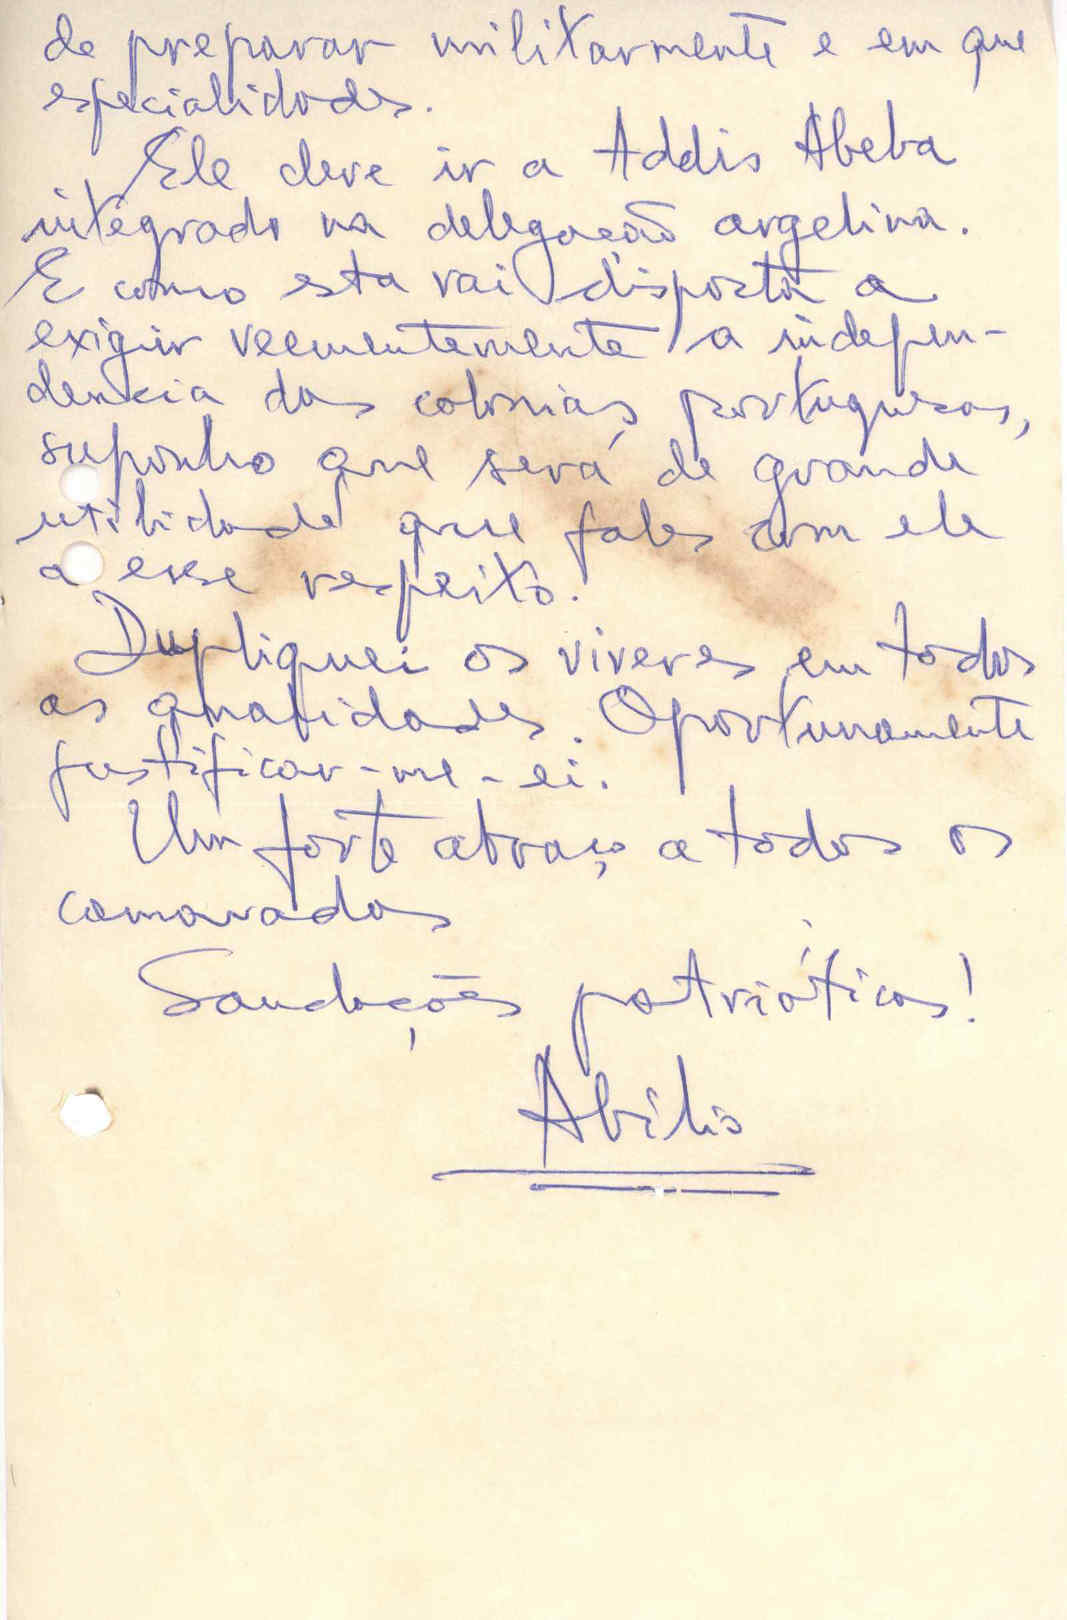 de preparar militarmente e em que
especialidades.
Ele deve ir a Addis Abeba
integrado na delegação argelina.
E como esta vai disposta a
exigir veementemente a indepen-
dencia das colonias portuguesas,
suponho que será de grande
utilidade que fales com ele
a esse respeito.
Dupliquei os viveres em todas
as qualidades. Oportunamente
justificar-me-ei.
Um forte abraço a todos os
camaradas
Saudações patrióticas!
Abílio